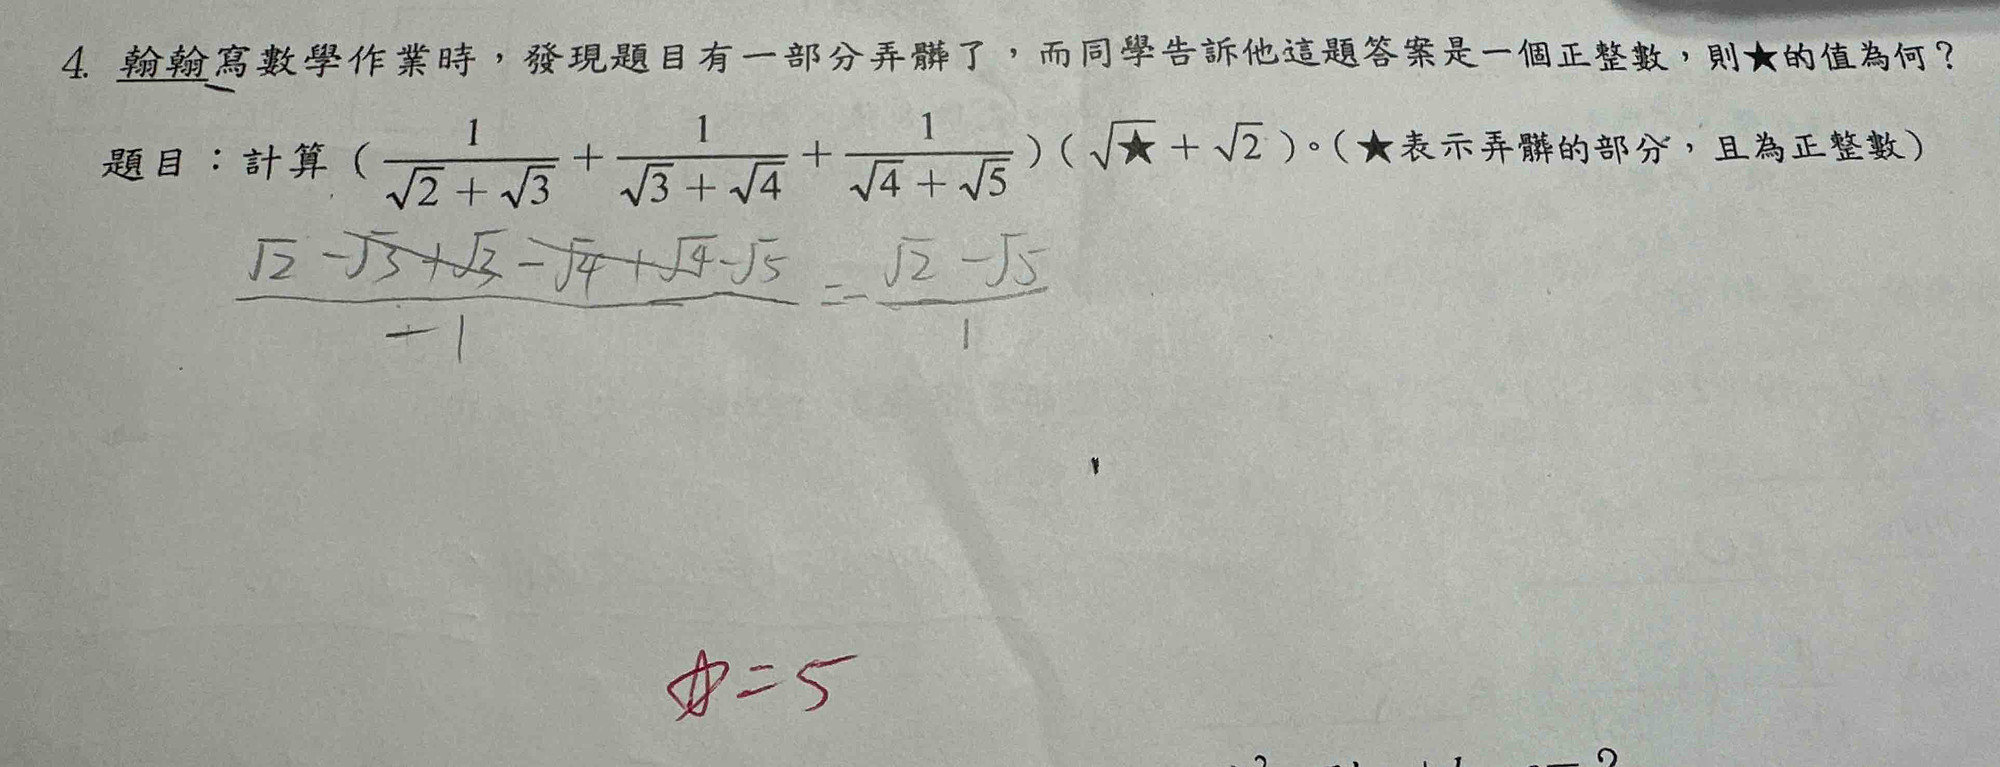 4. 翰翰寫數學作業時，發現題目有一部分弄髒了，而同學告訴他這題答案是一個正整數，則★的值為何？
題目：計算（1/(√2+√3) + 1/(√3+√4) + 1/(√4+√5)）（√★+√2）。（★表示弄髒的部分，且為正整數）
(√2-√3+√3-√4+√4-√5)/-1 = -(√2-√5)/1
☆=5